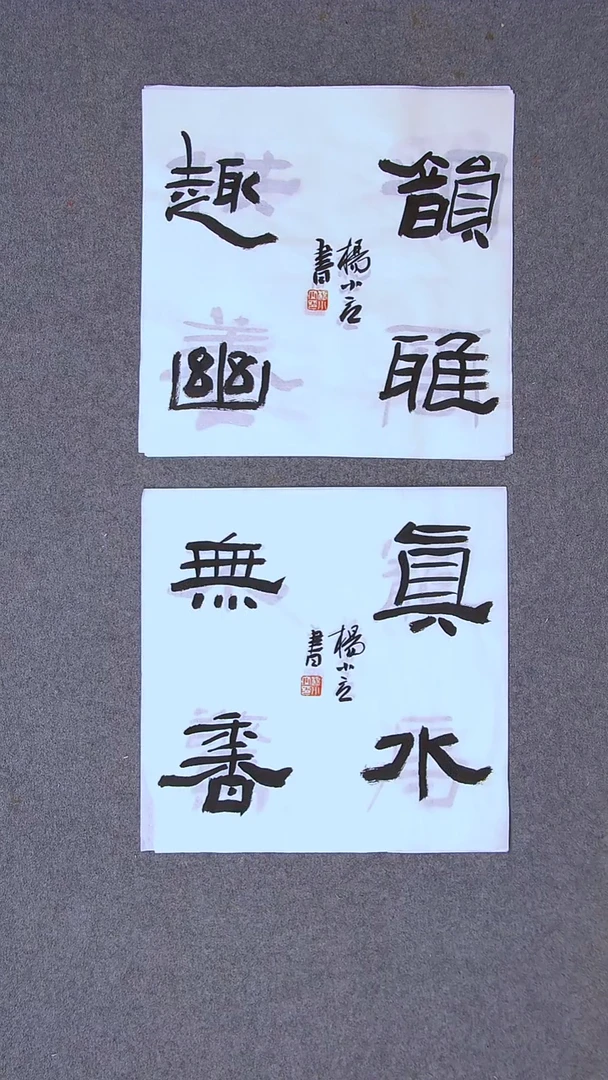 韻雅
趣幽
楊小立
書
眞水
無香
楊小立
書